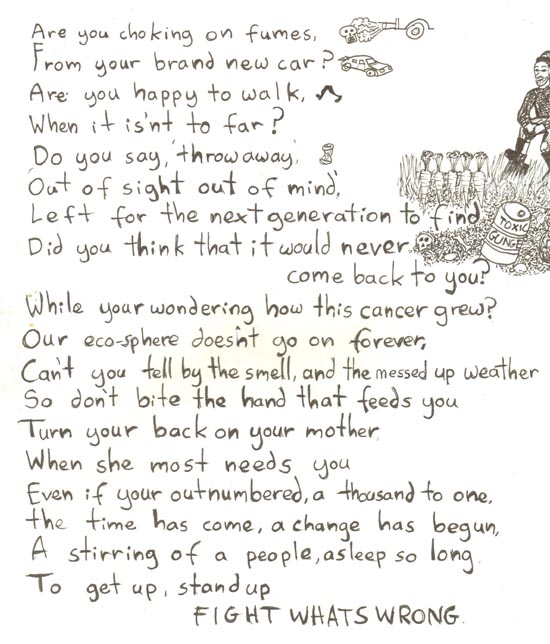 Are you choking on fumes,
From your brand new car?
Are you happy to walk,
When it is'nt to far?
Do you say, 'throwaway,
Out of sight out of mind',
Left for the next generation to find
Did you think that it would never
come back to you?
TOXIC
GUNGE
While your wondering how this cancer grew?
Our eco-sphere doesn't go on forever,
Can't you tell by the smell, and the messed up weather
So don't bite the hand that feeds you
Turn your back on your mother
When she most needs you
Even if your outnumbered, a thousand to one,
the time has come, a change has begun,
A stirring of a people, asleep so long
To get up, stand up
FIGHT WHATS WRONG.